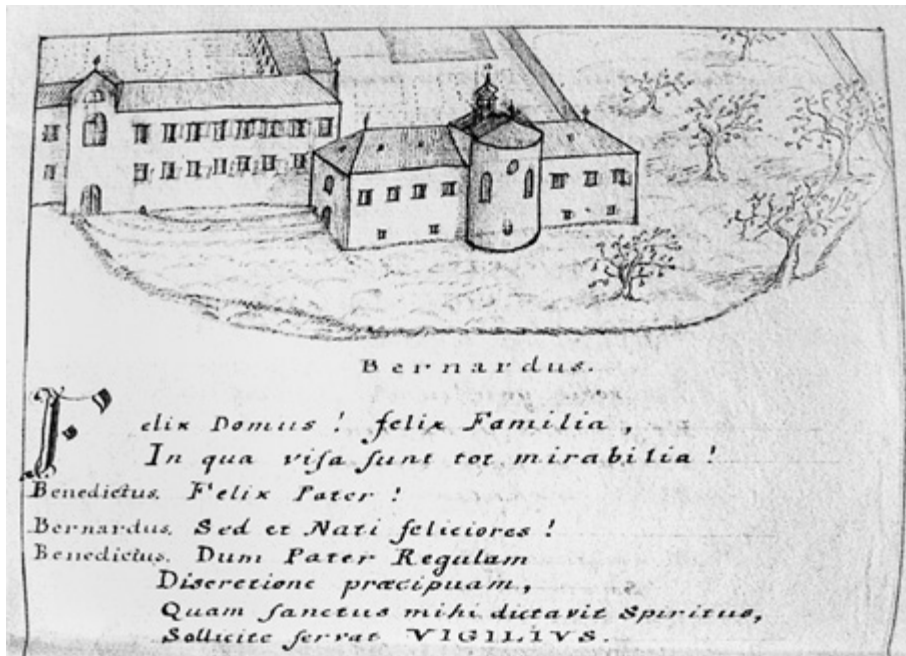 Bernardus.
Felix Domus! felix Familia,
In qua viſa ſunt tot mirabilia!
Benedictus. Felix Pater!
Bernardus. Sed et Nati feliciores!
Benedictus. Dum Pater Regulam
Discretione præcipuam,
Quam ſanctus mihi dictavit Spiritus,
Sollicite ſervat VIGILIVS.